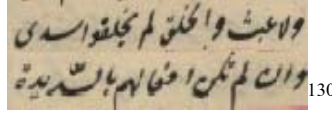 ولا عبث والخلق لم يخلقوا سدى
وان لم تكن افعالهم بالسديدة
130